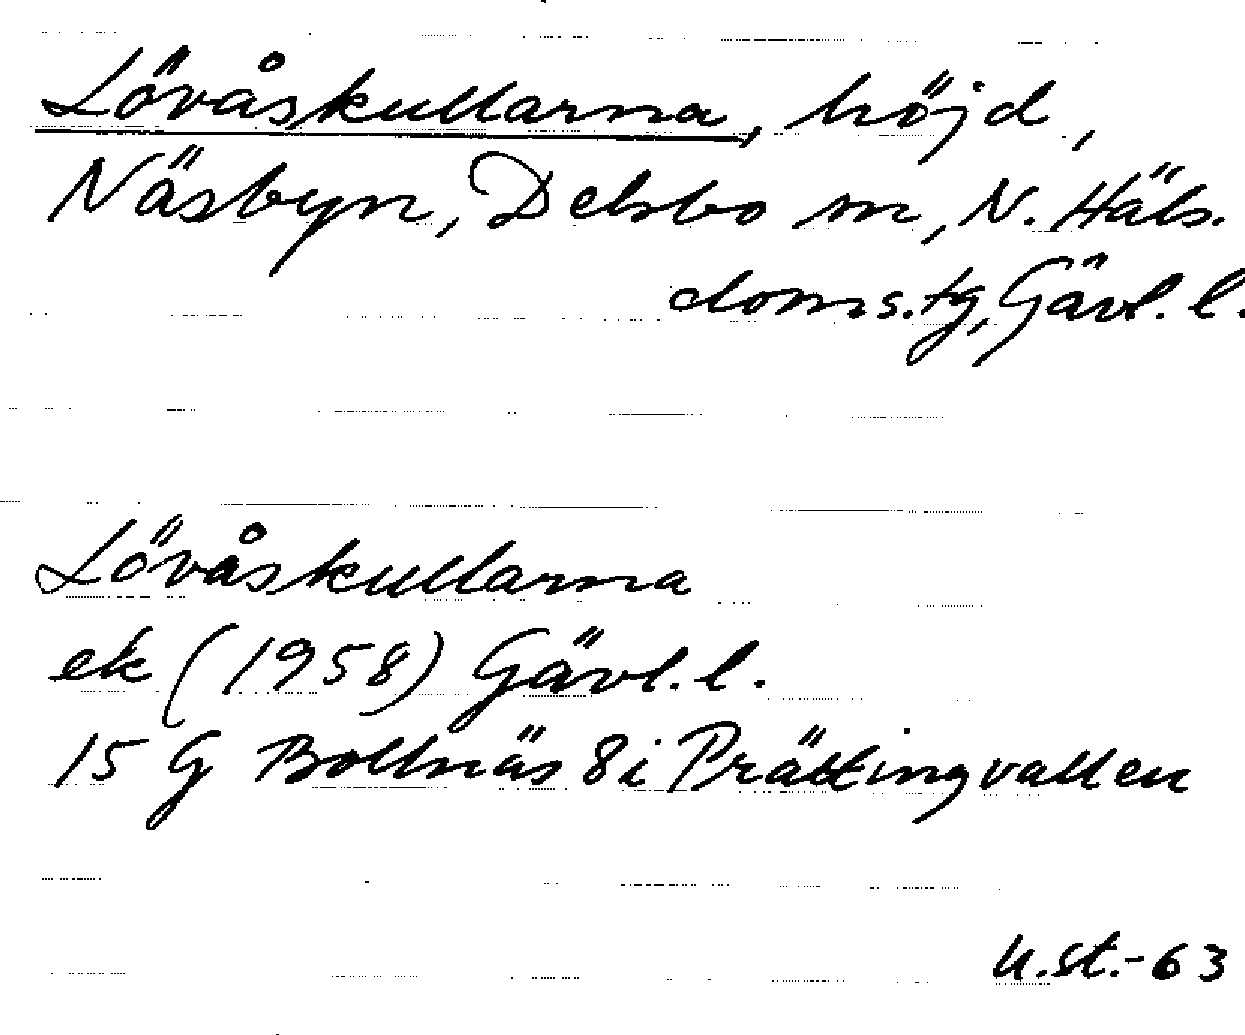 Lövåskullarna, höjd,
Näsbyn, Delsbo sn, N. Häls.
doms.tg, Gävl. l.
Lövåskullarna
ek (1958) Gävl. l.
15 G Bollnäs 8i Prättingvallen
U.st.-63